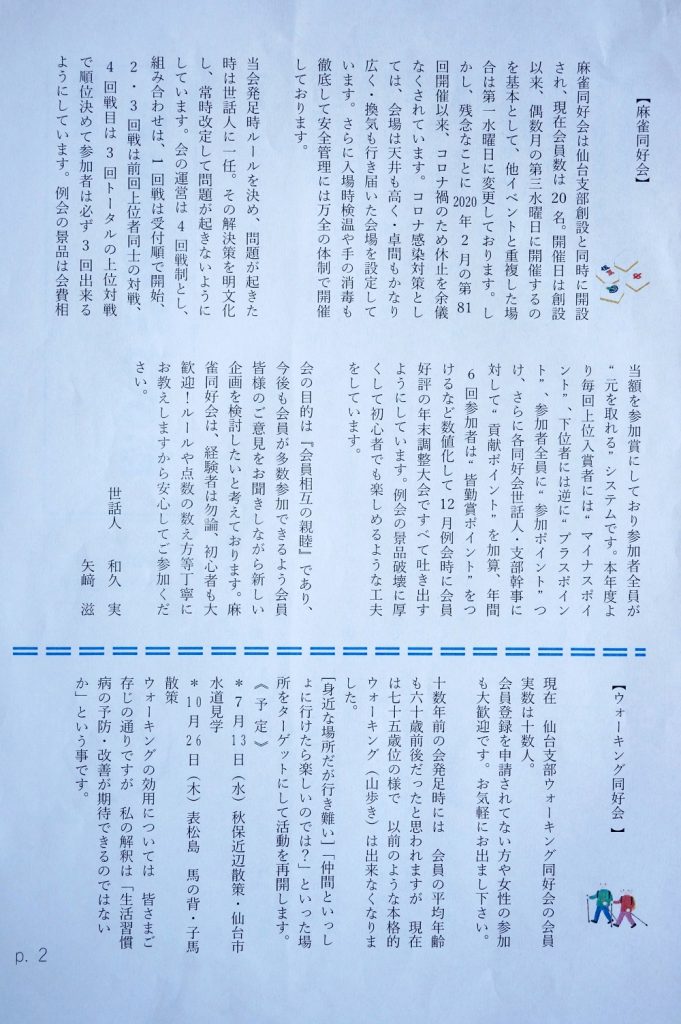 【麻雀同好会】
麻雀同好会は仙台支部創設と同時に開設
され、現在会員数は20名。開催日は創設
以来、偶数月の第三水曜日に開催するの
を基本として、他イベントと重複した場
合は第一水曜日に変更しております。し
かし、残念なことに2020年2月の第81
回開催以来、コロナ禍のため休止を余儀
なくされています。コロナ感染対策とし
ては、会場は天井も高く・卓間もかなり
広く・換気も行き届いた会場を設定して
います。さらに入場時検温や手の消毒も
徹底して安全管理には万全の体制で開催
しております。
当会発足時ルールを決め、問題が起きた
時は世話人に一任。その解決策を明文化
し、常時改定して問題が起きないように
しています。会の運営は4回戦制とし、
組み合わせは、1回戦は受付順で開始、
2・3回戦は前回上位者同士の対戦、
4回戦目は3回トータルの上位対戦
で順位決めて参加者は必ず3回出来る
ようにしています。例会の景品は会費相
当額を参加賞にしており参加者全員が
“元を取れる”システムです。本年度よ
り毎回上位入賞者には“マイナスポイ
ント”、下位者には逆に“プラスポイン
ト”、参加者全員に“参加ポイント”つ
け、さらに各同好会世話人・支部幹事に
対して“貢献ポイント”を加算、年間
6回参加者は“皆勤賞ポイント”をつ
けるなど数値化して12月例会時に会員
好評の年末調整大会ですべて吐き出す
ようにしています。例会の景品破壊に厚
くして初心者でも楽しめるような工夫
をしています。
会の目的は『会員相互の親睦』であり、
今後も会員が多数参加できるよう会員
皆様のご意見をお聞きしながら新しい
企画を検討したいと考えております。麻
雀同好会は、経験者は勿論、初心者も大
歓迎！ルールや点数の数え方等丁寧に
お教えしますから安心してご参加くだ
さい。
世話人　和久　実
矢﨑　滋
【ウォーキング同好会】
現在　仙台支部ウォーキング同好会の会員
実数は十数人。
会員登録を申請されてない方や女性の参加
も大歓迎です。お気軽にお出まし下さい。
十数年前の会発足時には　会員の平均年齢
も六十歳前後だったと思われますが　現在
は七十五歳位の様で　以前のような本格的
ウォーキング（山歩き）は出来なくなりま
した。
［身近な場所だが行き難い］「仲間といっし
ょに行けたら楽しいのでは？」といった場
所をターゲットにして活動を再開します。
《予定》
＊7月13日（水）秋保近辺散策・仙台市
水道見学
＊10月26日（木）表松島　馬の背・子馬
散策
ウォーキングの効用については　皆さまご
存じの通りですが　私の解釈は「生活習慣
病の予防・改善が期待できるのではない
か」という事です。
p. 2